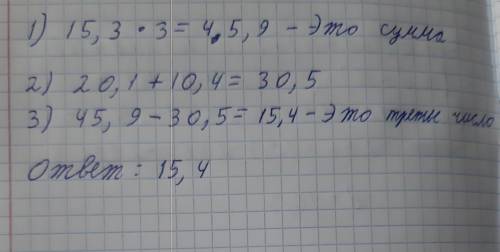 1) 15,3 · 3 = 4.5,9 - Это сумма
2) 20,1 + 10,4 = 30,5
3) 45,9 - 30,5 = 15,4 - Это треты число
Ответ: 15,4